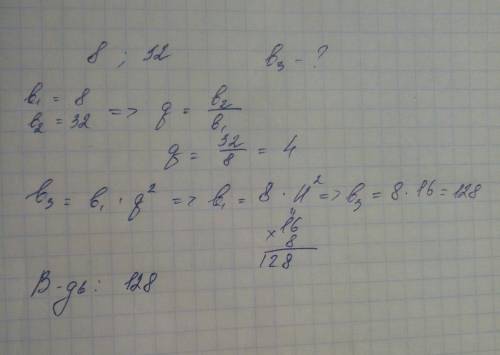 8 ; 32 b₃ - ?
b₁ = 8
b₂ = 32 => q = b₂/b₁
q = 32/8 = 4
b₃ = b₁ · q² => b₁ = 8 · 4² => b₃ = 8 · 16 = 128
×16
8
128
В-дь: 128